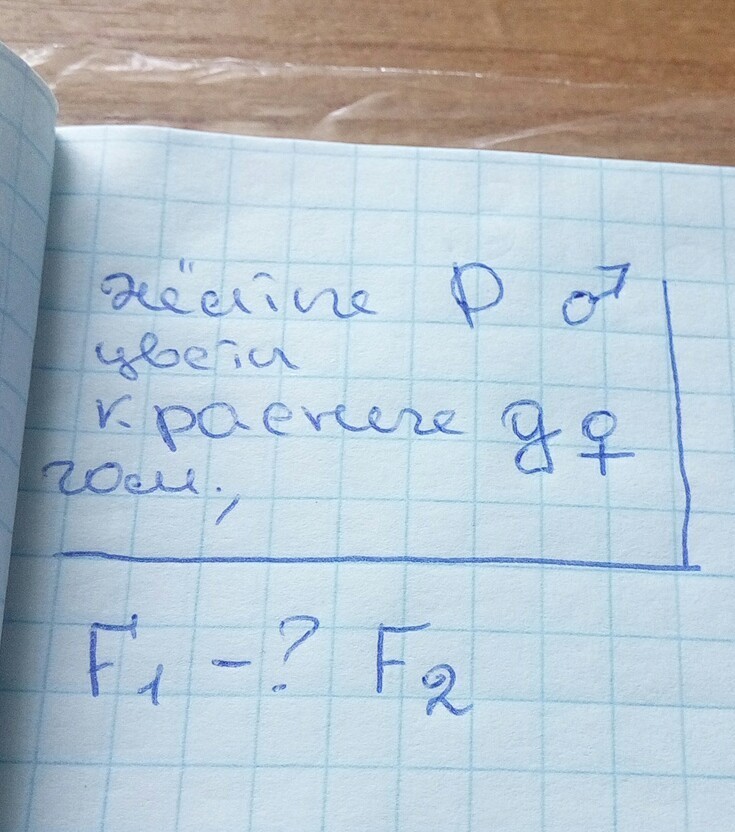 жёлтые P ♂
цветы
красные g ♀
гом.,
F₁ -? F₂